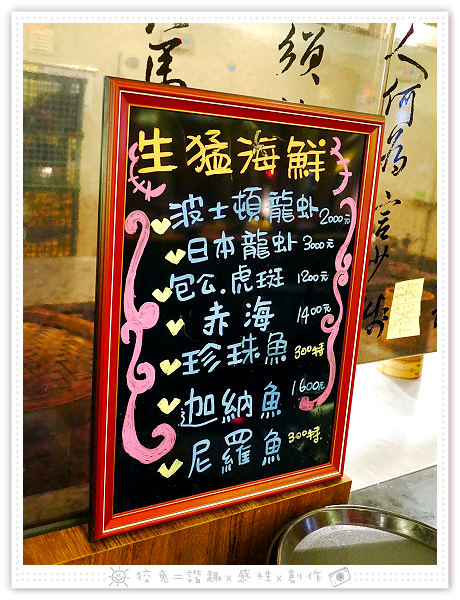 生猛海鮮
波士頓龍虾 2000元
日本龍虾 3000元
包公.虎斑 1200元
赤海 1400元
珍珠魚 300特
迦納魚 1600元
尼羅魚 300特
須
人何為言少
狡兔=諧趣x感性x創作